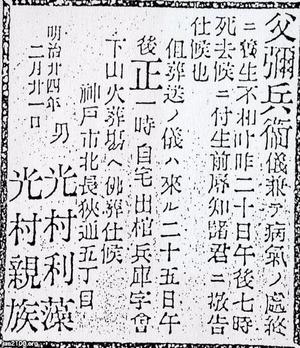 父彌兵衞儀兼テ病氣ノ處終
ニ養生不相叶昨二十日午後七時
死去候ニ付生前辱知諸君ニ敬告
仕候也
但葬送ノ儀ハ來ル二十五日午
後正一時自宅出棺兵庫字會
下山火葬塲ヘ佛葬仕候
神戸市北長狹通五丁目
明治廿四年
二月廿一日
男 光村利藻
光村親族